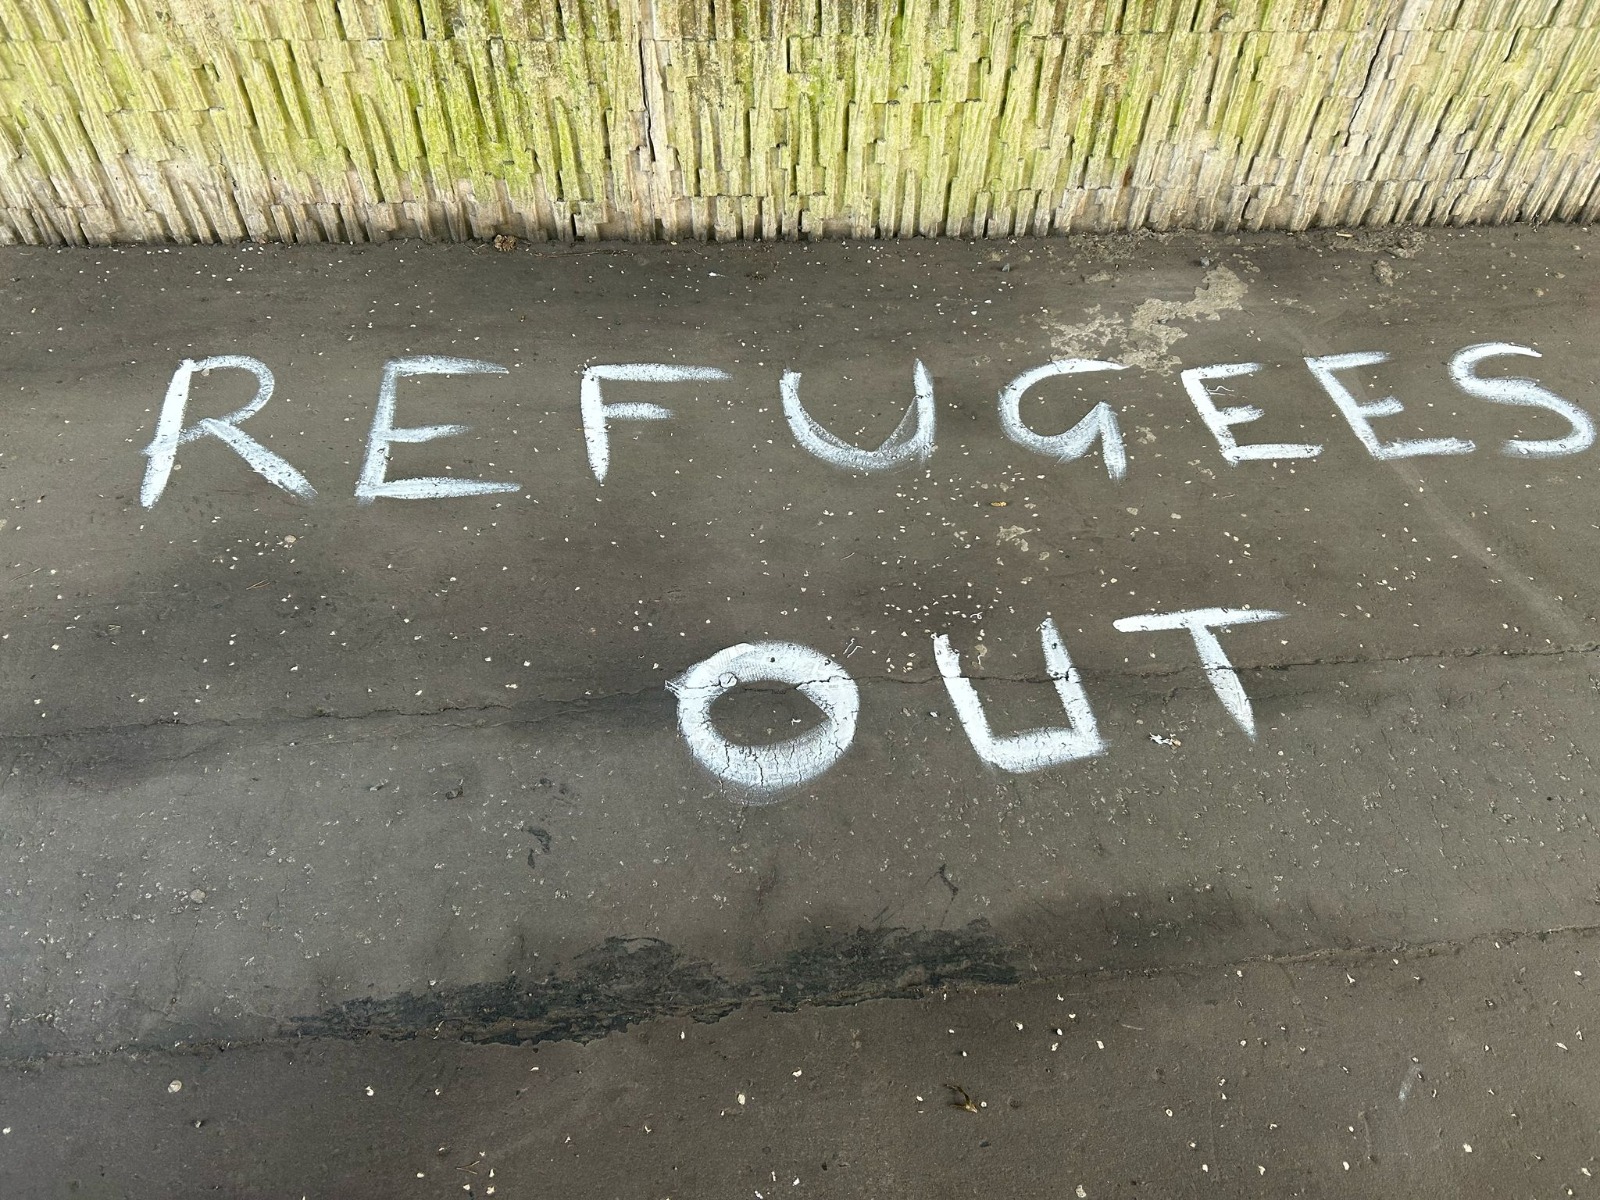 REFUGEES
OUT